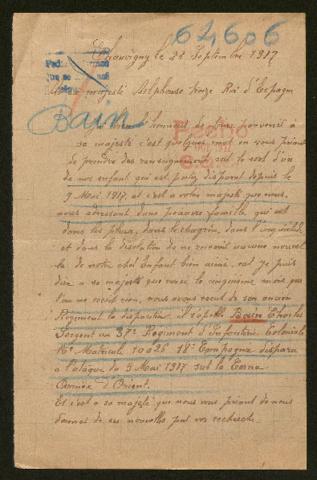 62,606
Chauvigny le 22 Septembre 1917
majesté Alphonse treize Roi d'Espagne
Bain
l'honneur de vous parvenir à
sa majesté c'est quelques mot en vous priant
de prendre des renseignements sur le sort d'un
de nos enfant qui est porté disparut depuis le
9 Mai 1917 et c'est a votre majesté que nous
nous adressont dans pauvres famille qui est
dans les pleurs, dans le chagrin, dans l'inquiétude
et dans la désolation de ne recevoir aucune nouvel
le de notre cher Enfant bien aimé, car je puis
dire a sa majesté que voici le cinquieme mois que
l'on ne reçoit rien, nous avons recut de son ancien
Regiment la disparution il s'apelle Bain Charles
Sergent au 37e Regiment d'Infanterie Coloniale
Nle Matricule 10026 18e Compagnie disparu
a l'ataque du 9 Mai 1917 sur la Cerna
Armée d'Orient.
Et c'est a sa majesté que nous vous priont de nous
donner de ses nouvelles par vos recherche.